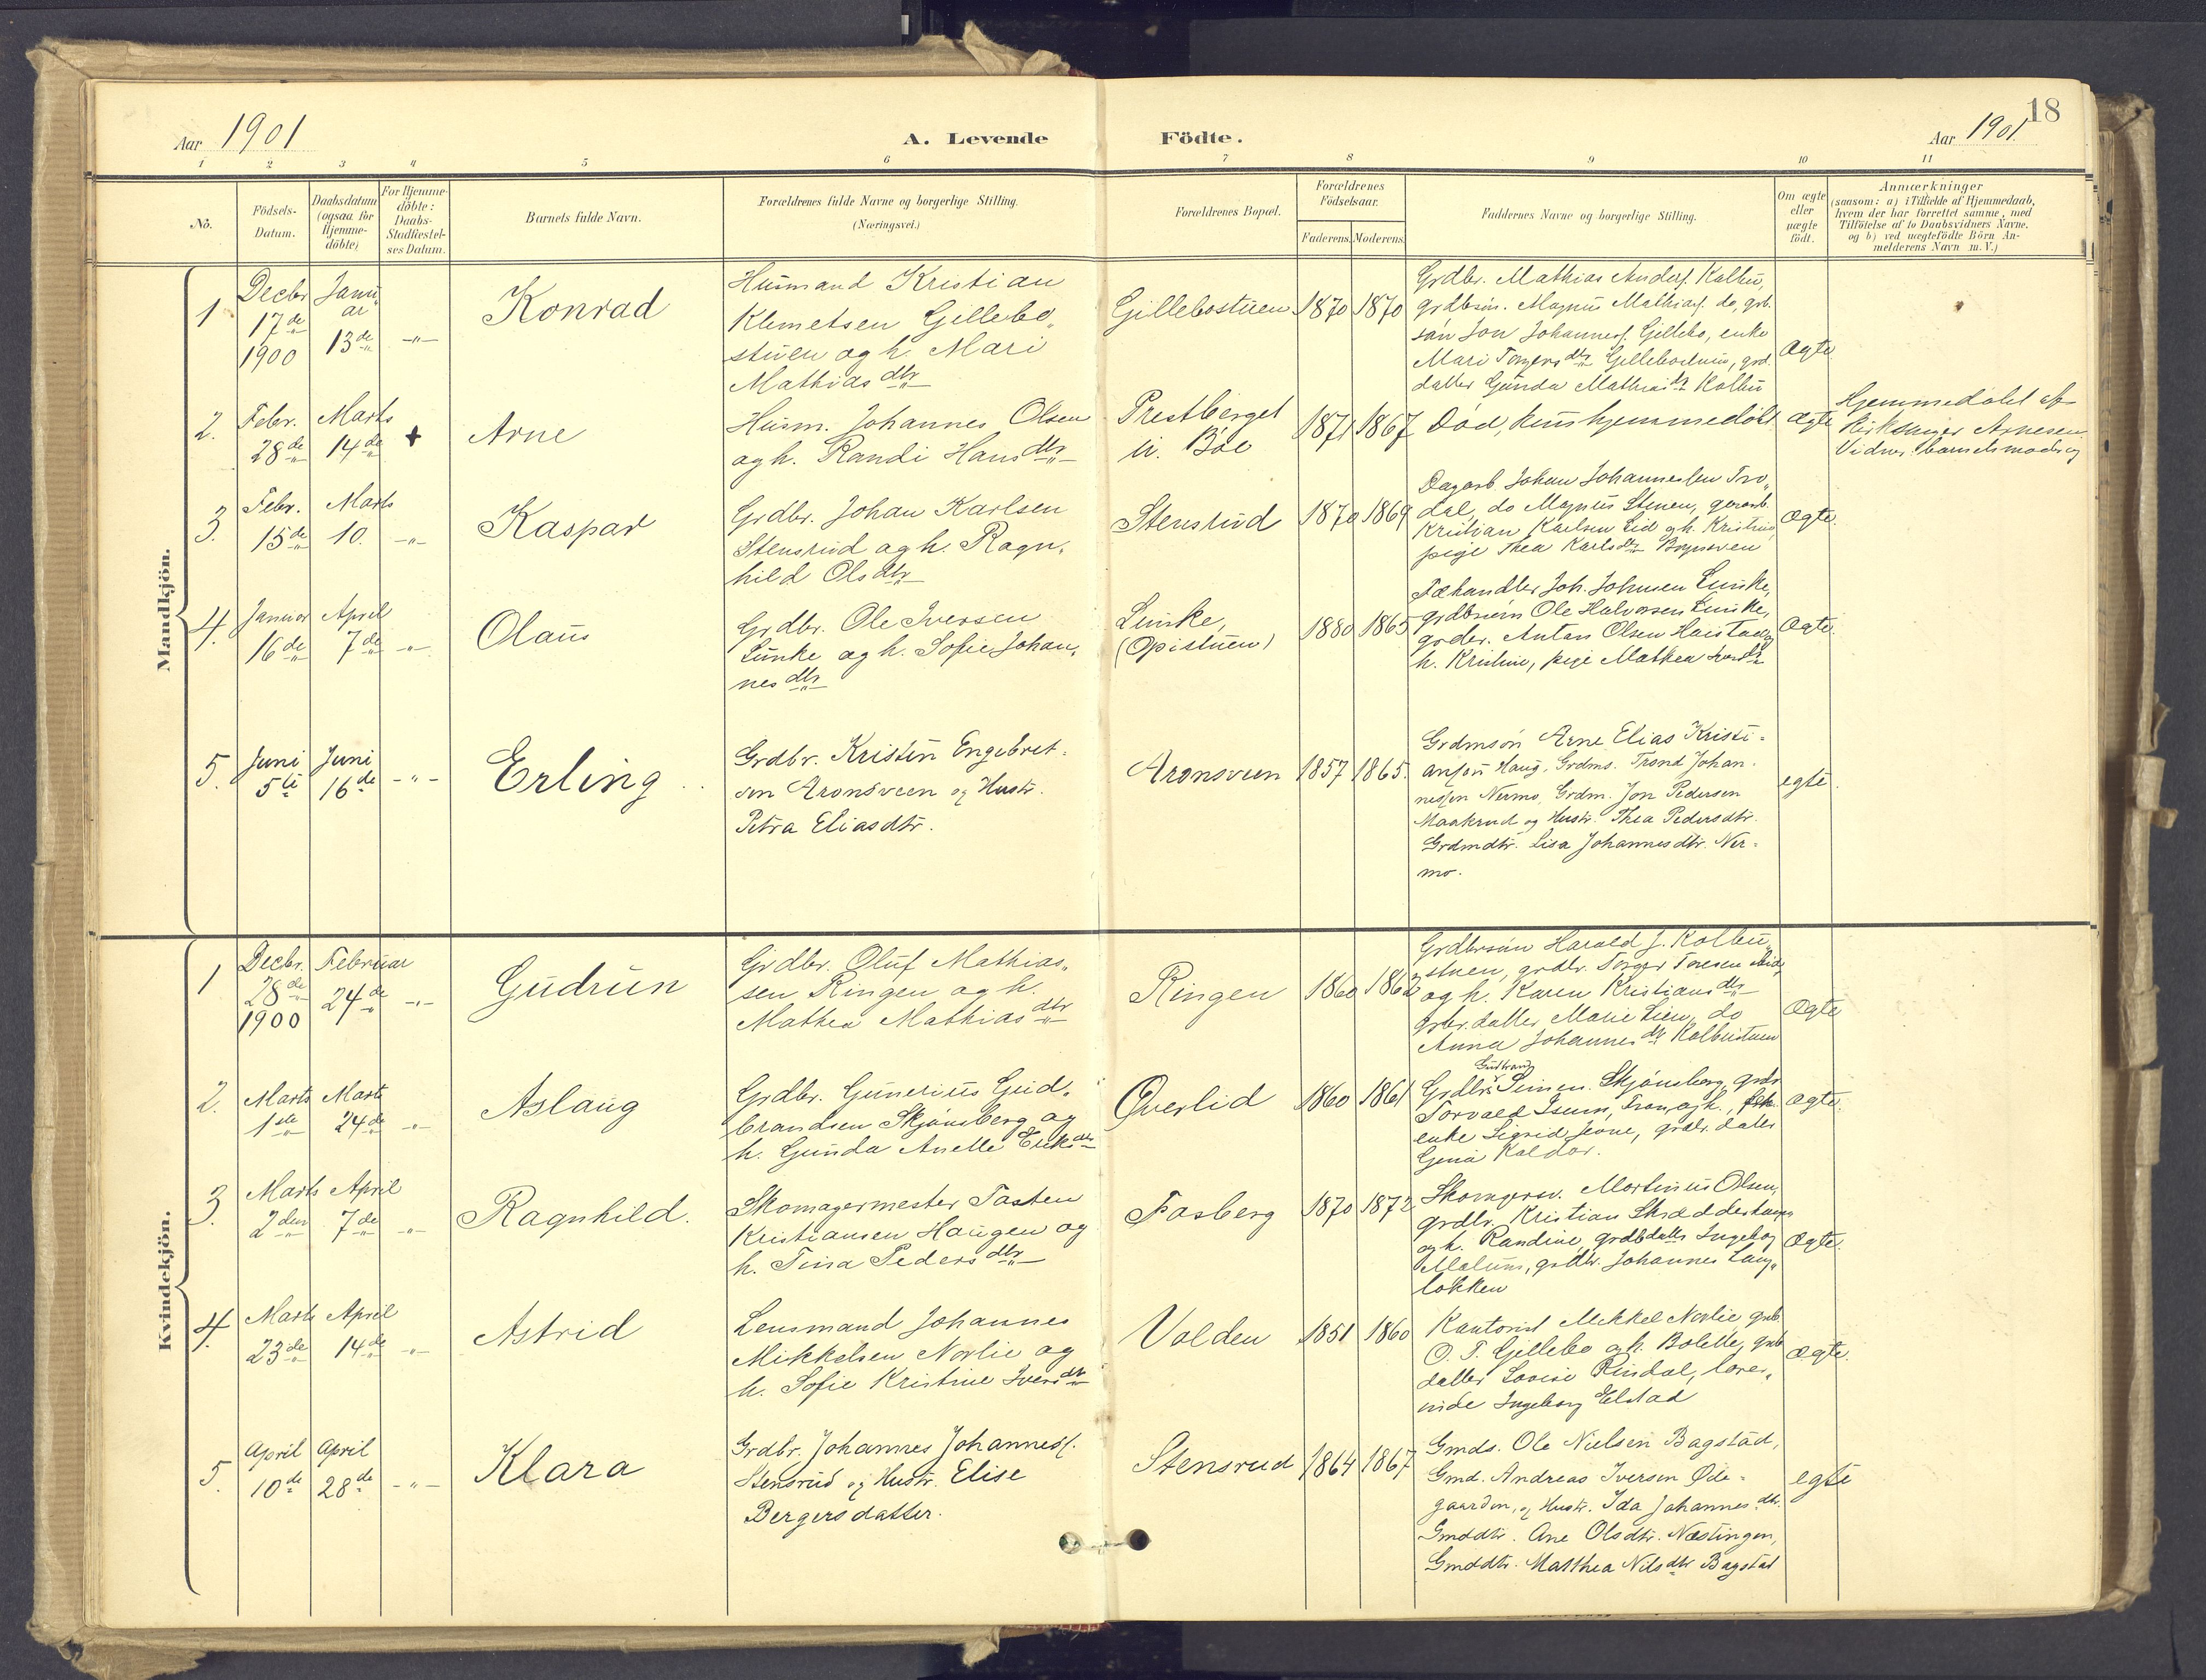 18
Aar 1901
A. Levende Födte.
Aar 1901.
1 2 3 4 5 6 7 8 9 10 11
No.
Födsels-
Datum.
Daabsdatum
(ogsaa for
Hjemme-
döbte)
For Hjemme-
döbte:
Daabs-
Stadfæstel-
ses Datum.
Barnets fulde Navn.
Forældrenes fulde Navne og borgerlige Stilling.
(Næringsvei.)
Forældrenes Bopæl.
Forældrenes
Födselsaar.
Faderens. Moderens.
Faddernes Navne og borgerlige Stilling.
Om ægte
eller
uægte
født.
Anmærkninger
(saasom: a) i Tilfælde af Hjemmedaab,
hvem der har forrettet samme, med
Tilföielse af to Daabsvidners Navne,
og b) ved uægtefödte Börn An-
melderens Navn m. V.)
Mandkjön.
1
Decbr
17de
1900
Janu
ar
13de
-"-
Konrad
Husmand Kristian
Klemetsen Gillebo„
stuen og h. Mari
Mathiasdtr
Gillebostuen
1870 1870
Grdbr. Mathias Anders. Kolbu,
grdbsön. Magnus Mathias. do, grb.
sön Jon Johannes. Gillebo, enke
Mari Torgersdtr Gillebostuen, grd.
datter Gunda Mathiasdtr Kolbu
ægte
2.
Febr.
28de
Marts
14de
+
Arne
Husm. Johannes Olsen
og h. Randi Hansdtr
Prestberget
u. Böe
1871 1867
Död, kun hjemmedöbt
ægte
Hjemmedöbt af
Kirksanger Arnesen
Vidner: barnets moder og
3.
Febr.
15de
Marts
10.
-"-
Kaspar
Grdbr. Johan Karlsen
Stensrud og h. Ragn„
hild Olsdtr
Stensrud
1870 1869
Dagarb. Johan Johannessen Tro„
dal, do Magnus Stenen, gaardb.
Kristian Karlsen Lid og h. Kristine,
pige Thea Karlsdtr
ægte.
4.
Januar
16de
April
7de
-"-
Olaus
Grdbr. Ole Iversen
Lunke og h. Sofie Johan„
nesdtr
Lunke,
(Opistuen)
1880 1865
Fæhandler Joh. Johnsen Lunke,
grdbrsön Ole Halvorsen Lunke,
grdbr. Anton Olsen Haistad og
h. Kristine, pige Mathea
ægte.
5.
Juni
5te
Juni
16de
-"-
Erling
Grdbr. Kristen Engebret-
sen Aronsveen og Hustr.
Petra Eliasdtr.
Aronsveen
1857 1865.
Grdmsön Arne Elias Kristi-
ansen Haug, Grdms. Trond Johan-
nessen Nermo, Grdm. Jon Pedersen
Maakrud og Hustr. Thea Pedersdtr.
Grdmdtr. Lisa Johannesdtr. Ner-
mo.
egte.
Kvindekjön.
1
Decbr.
28de
1900
Februar
24de
-"-
Gudrun
Grdbr. Oluf Mathias„
sen Ringen og h.
Mathea Mathiasdtr
Ringen
1860 1862
Grdbrsön Harald J. Kolbu„
stuen, grdbr. Torger Toresen
og h. Karen Kristiansdtr
grbr. datter Marie Lien, do
Anna Johannesdtr Kolbustuen
ægte
2.
Marts
1ste
Marts
24de
-"-
Aslaug
Grdbr. Gunerius Gud„
brandsen Skjönsberg og
h. Gunda Anette Eriksdtr
Överlid
1860 1861
Gudbrand
Grdbr. Simen. Skjönsberg, grdr
Torvald Isum, Fron, og h.,
enke Sigrid Jevne, grdbr. datter
Gina Kaldor.
ægte.
3.
Marts
2den
April
7de
-"-
Ragnhild.
Skomagermester Tosten
Kristiansen Haugen og
h. Tina Pedersdtr
Fosberg
1870 1872
Skomgersv. Martinius Olsen,
grdbr. Kristian Skrædderhaugen
og h. Randine, grdbdatter Ingebog
Melum, grdbr. Johannes Lang„
lökken
ægte.
4.
Marts
23de
April
14de
-"-
Astrid
Lensmand Johannes
Mikkelsen Norlie og
h. Sofie Kristine Iversdtr
Volden
1851 1860
Kantorist Mikkel Norlie, grdb.
O. T. Gillebo og h. Bolette, grdb
datter Lovise Rindal, lærer„
inde Ingeborg Elstad
ægte.
5.
April
10de
April
28de
-"-
Klara
Grdbr. Johannes Johanness.
Stensrud og Hustr. Elise
Bergersdatter.
Stensrud
1864 1867
Gmds. Ole Nielsen Bagstad,
Gmd. Andreas Iversen Øde-
gaarden, og Hustr. Ida Johannesdtr.
Gmddtr. Ane Olsdtr. Næstingen,
Gmddtr. Matthea Nilsdtr Bagstad
egte